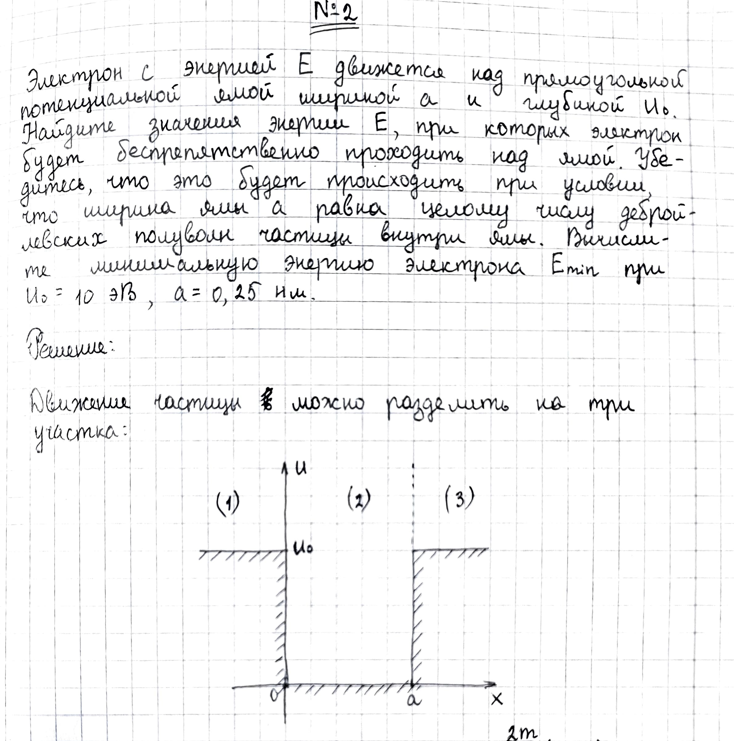 №2
Электрон с энергией E движется над прямоугольной
потенциальной ямой шириной a и глубиной U₀.
Найдите значения энергии E, при которых электрон
будет беспрепятственно проходить над ямой. Убе-
дитесь, что это будет происходить при условии,
что ширина ямы a равна целому числу деброй-
левских полуволн частицы внутри ямы. Вычисли-
те минимальную энергию электрона Emin при
U₀ = 10 эВ, a = 0,25 нм.
Решение:
Движение частицы можно разделить на три
участка:
U
(1) (2) (3)
U₀
0 a x
2m